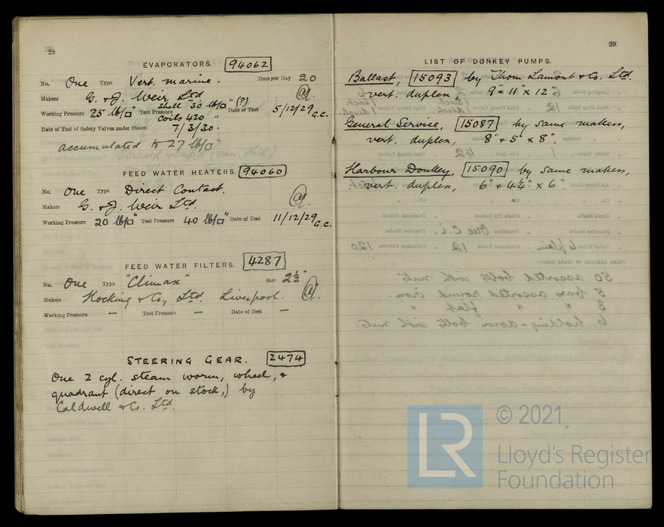 28
EVAPORATORS. 94062
No. One Type Vert. marine. Tons per Day 20
Makers G. & J. Weir Ltd
Working Pressure 25 lb/□" Test Pressure shell 30 lb/□" (?) Date of Test 5/12/29 G.C.
coils 420 "
Date of Test of Safety Valves under Steam 7/3/30.
accumulated to 27 lb/□"
FEED WATER HEATERS. 94060
No. One Type Direct Contact.
Makers G. & J. Weir Ltd.
Working Pressure 20 lb/□" Test Pressure 40 lb/□" Date of Test 11/12/29 G.C.
FEED WATER FILTERS. 4287
No. One Type "Climax" Size 2½"
Makers Hocking & Co, Ltd. Liverpool.
Working Pressure — Test Pressure — Date of Test —
STEERING GEAR. 2474
One 2 cyl. steam worm, wheel, &
quadrant (direct on stock,) by
Caldwell & Co. Ltd.
29
LIST OF DONKEY PUMPS.
Ballast, 15093 by Thom Lamont & Co. Ltd.
vert. duplex 9" × 11" × 12".
General Service, 15087 by same makers,
vert. duplex, 8" × 5" × 8".
Harbour Donkey, 15090 by same makers,
vert. duplex, 6" × 4½" × 6".
LR © 2021
Lloyd's Register
Foundation